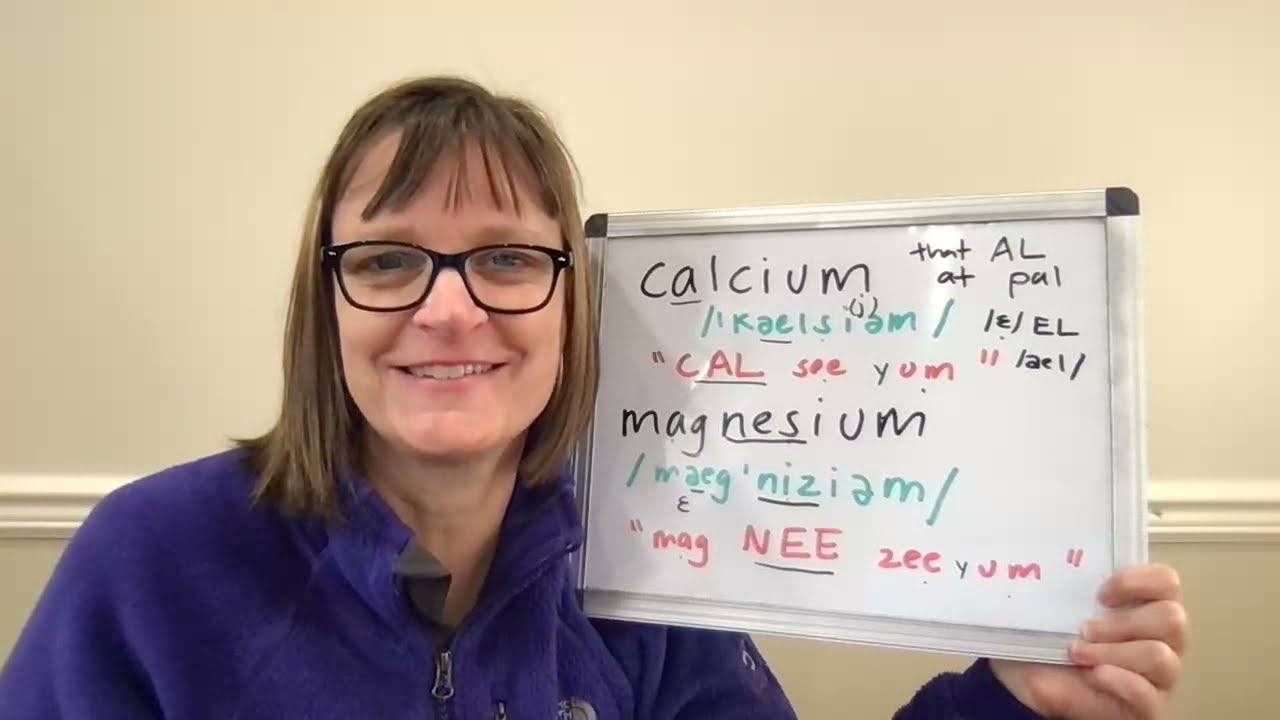 calcium that AL
at pal
/ˈkaelsi(j)əm/ /ɛ/ EL
"CAL see yum" /ael/
magnesium
/maegˈniziəm/
ɛ
"mag NEE zee yum"